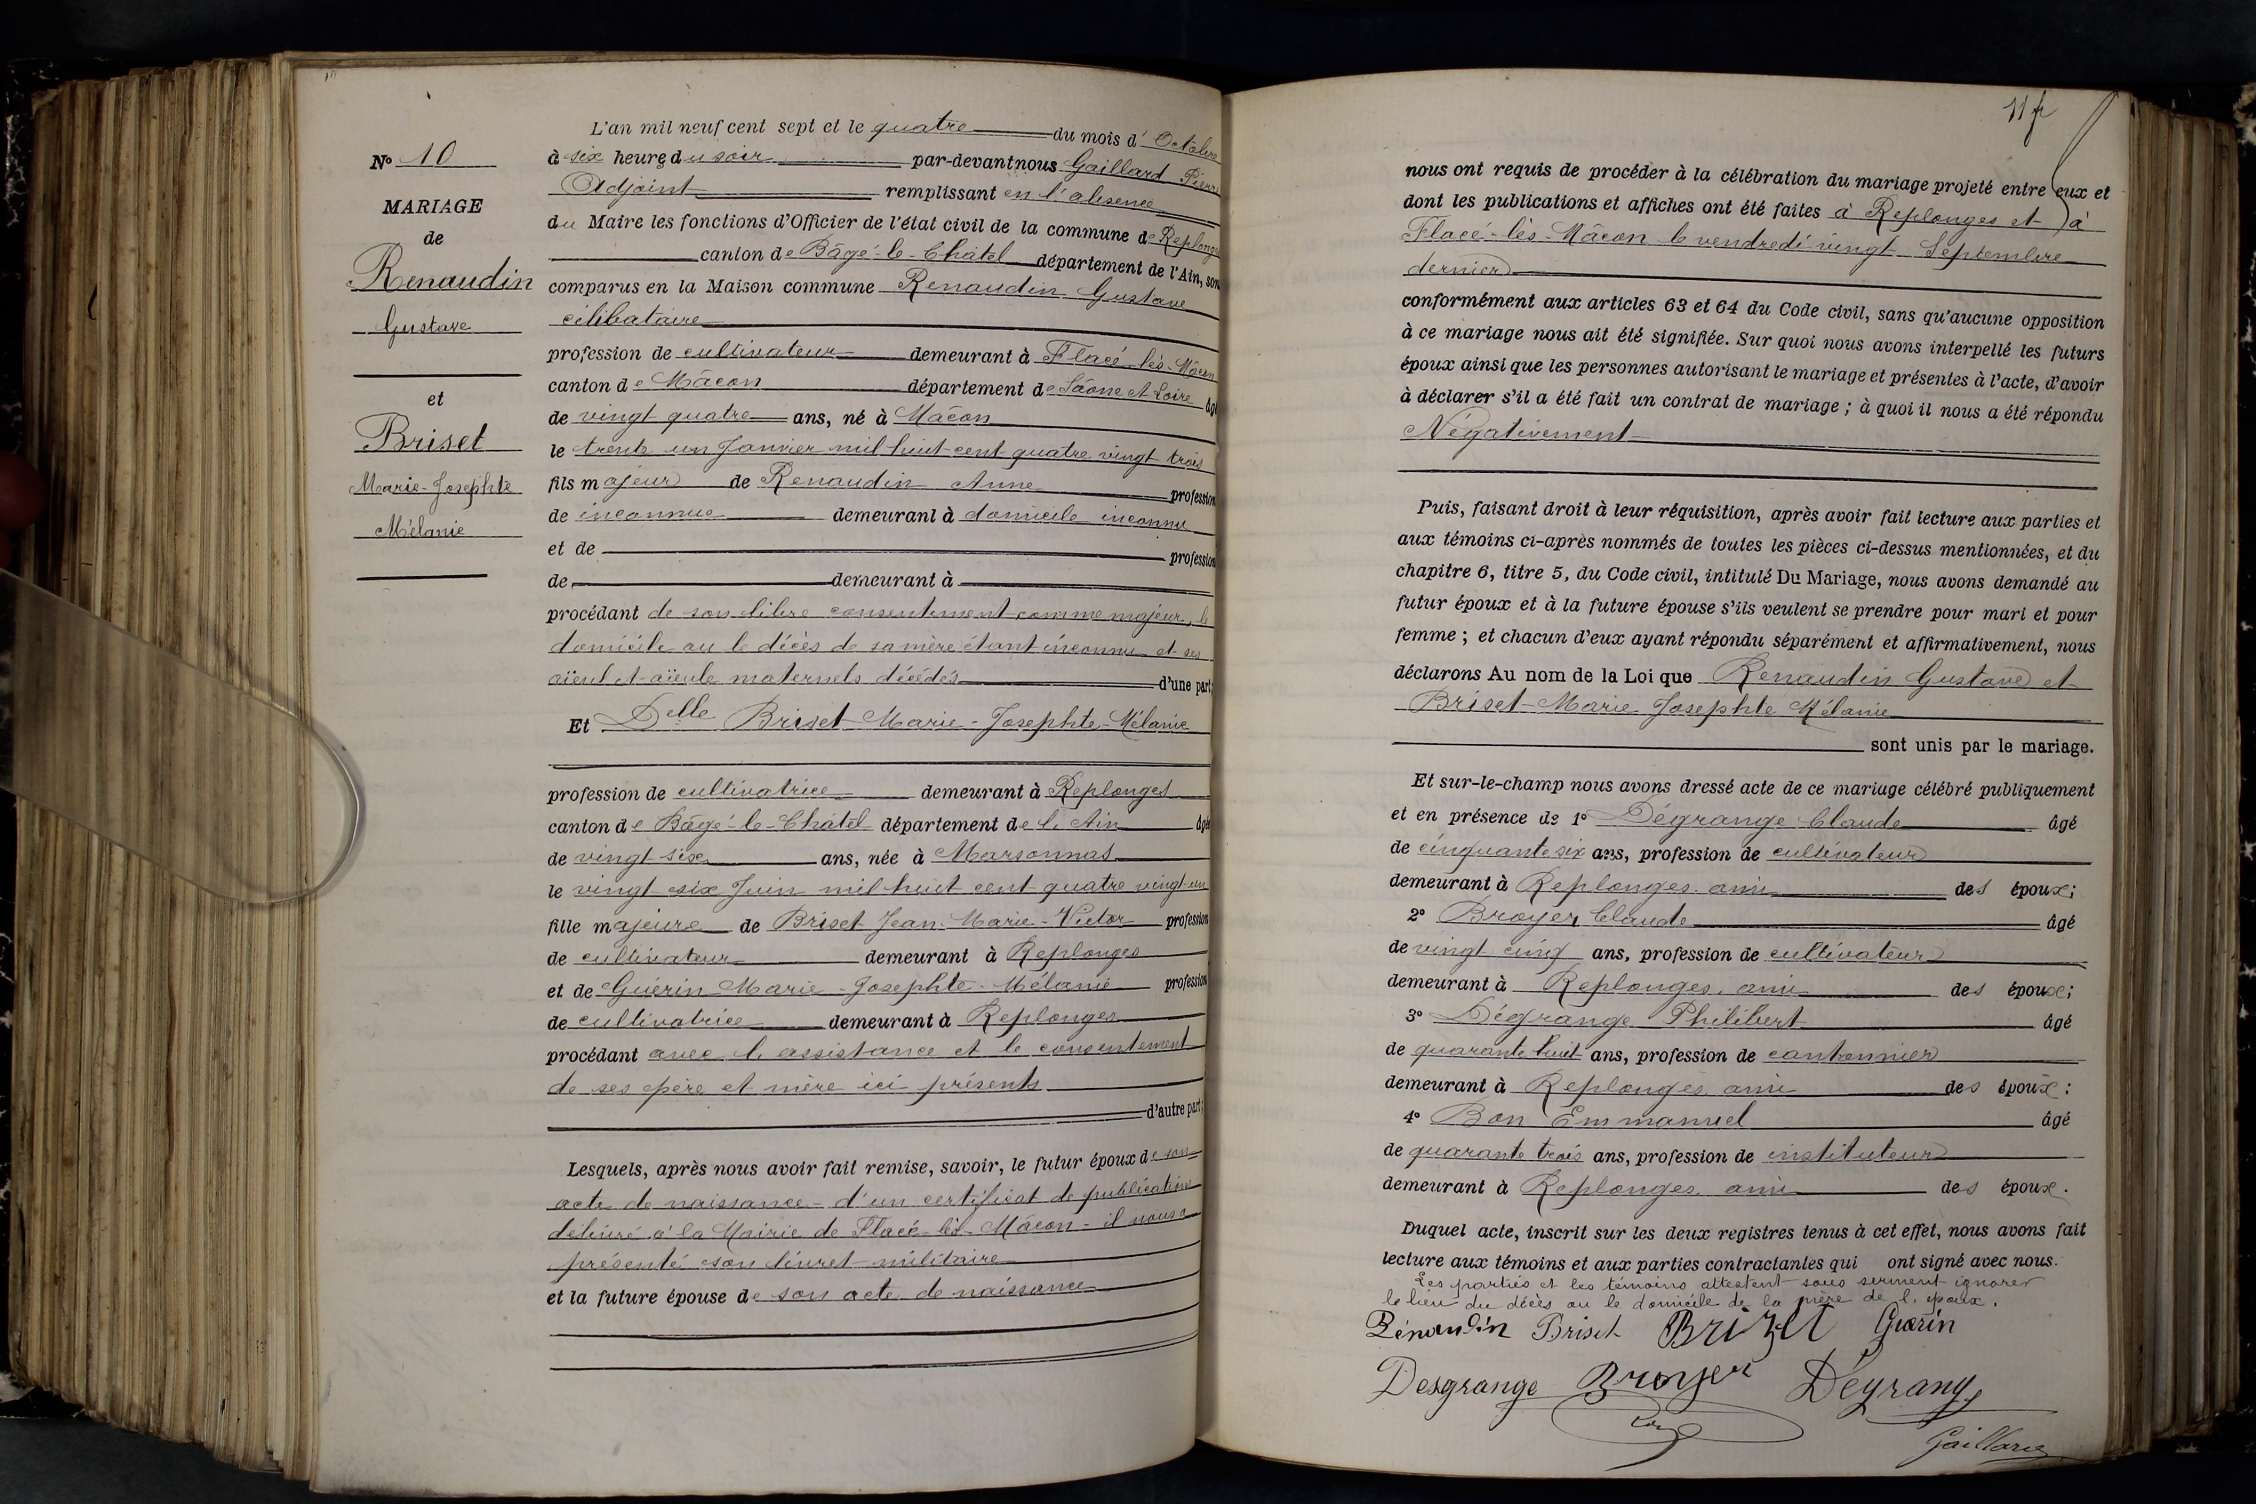 N° 10
MARIAGE
de
Renaudin
Gustave
et
Briset
Marie-Josephte
Mélanie
L'an mil neuf cent sept et le quatre du mois d'Octobre
à six heures du soir par-devant nous Gaillard Pierre
Adjoint remplissant en l'absence
du Maire les fonctions d'Officier de l'état civil de la commune de Replonges
canton de Bâgé-le-Châtel département de l'Ain, son
comparus en la Maison commune Renaudin Gustave
célibataire
profession de cultivateur demeurant à Flacé-lès-Mâcon
canton de Mâcon département de Saône et Loire âgé
de vingt quatre ans, né à Mâcon
le trente un Janvier mil huit cent quatre vingt trois
fils majeur de Renaudin Anne profession
de inconnue demeurant à domicile inconnu
et de profession
de demeurant à
procédant de son libre consentement comme majeur, le
domicile ou le décès de sa mère étant inconnu et ses
aïeul et aïeule maternels décédés d'une part;
Et Delle Briset Marie-Josephte-Mélanie
profession de cultivatrice demeurant à Replonges
canton de Bâgé-le-Châtel département de l'Ain âgée
de vingt-six ans, née à Marsonnas
le vingt six Juin mil huit cent quatre vingt-un
fille majeure de Briset Jean-Marie-Victor profession
de cultivateur demeurant à Replonges
et de Guérin Marie-Josephte-Mélanie profession
de cultivatrice demeurant à Replonges
procédant avec l'assistance et le consentement
de ses père et mère ici présents
d'autre part;
Lesquels, après nous avoir fait remise, savoir, le futur époux de son
acte de naissance - d'un certificat de publication
délivré à la Mairie de Flacé-lès-Mâcon - il nous a
présenté son livret militaire
et la future épouse de son acte de naissance
11
nous ont requis de procéder à la célébration du mariage projeté entre eux et
dont les publications et affiches ont été faites à Replonges et à
Flacé-lès-Mâcon le vendredi vingt Septembre
dernier
conformément aux articles 63 et 64 du Code civil, sans qu'aucune opposition
à ce mariage nous ait été signifiée. Sur quoi nous avons interpellé les futurs
époux ainsi que les personnes autorisant le mariage et présentes à l'acte, d'avoir
à déclarer s'il a été fait un contrat de mariage; à quoi il nous a été répondu
Négativement
Puis, faisant droit à leur réquisition, après avoir fait lecture aux parties et
aux témoins ci-après nommés de toutes les pièces ci-dessus mentionnées, et du
chapitre 6, titre 5, du Code civil, intitulé Du Mariage, nous avons demandé au
futur époux et à la future épouse s'ils veulent se prendre pour mari et pour
femme; et chacun d'eux ayant répondu séparément et affirmativement, nous
déclarons Au nom de la Loi que Renaudin Gustave et
Briset-Marie Josephte Mélanie
sont unis par le mariage.
Et sur-le-champ nous avons dressé acte de ce mariage célébré publiquement
et en présence de 1° Dégrange Claude âgé
de cinquante six ans, profession de cultivateur
demeurant à Replonges ami des époux;
2° Broyer Claude âgé
de vingt cinq ans, profession de cultivateur
demeurant à Replonges, ami des époux;
3° Dégrange Philibert âgé
de quarante huit ans, profession de cantonnier
demeurant à Replonges ami des époux:
4° Bon Emmanuel âgé
de quarante trois ans, profession de instituteur
demeurant à Replonges, ami des époux.
Duquel acte, inscrit sur les deux registres tenus à cet effet, nous avons fait
lecture aux témoins et aux parties contractantes qui ont signé avec nous.
Les parties et les témoins attestent sous serment ignorer
le lieu du décès ou le domicile de la mère de l'époux.
Rénaudin Briset Brizet Guérin
Desgrange Broyer Dégrange
Gaillard